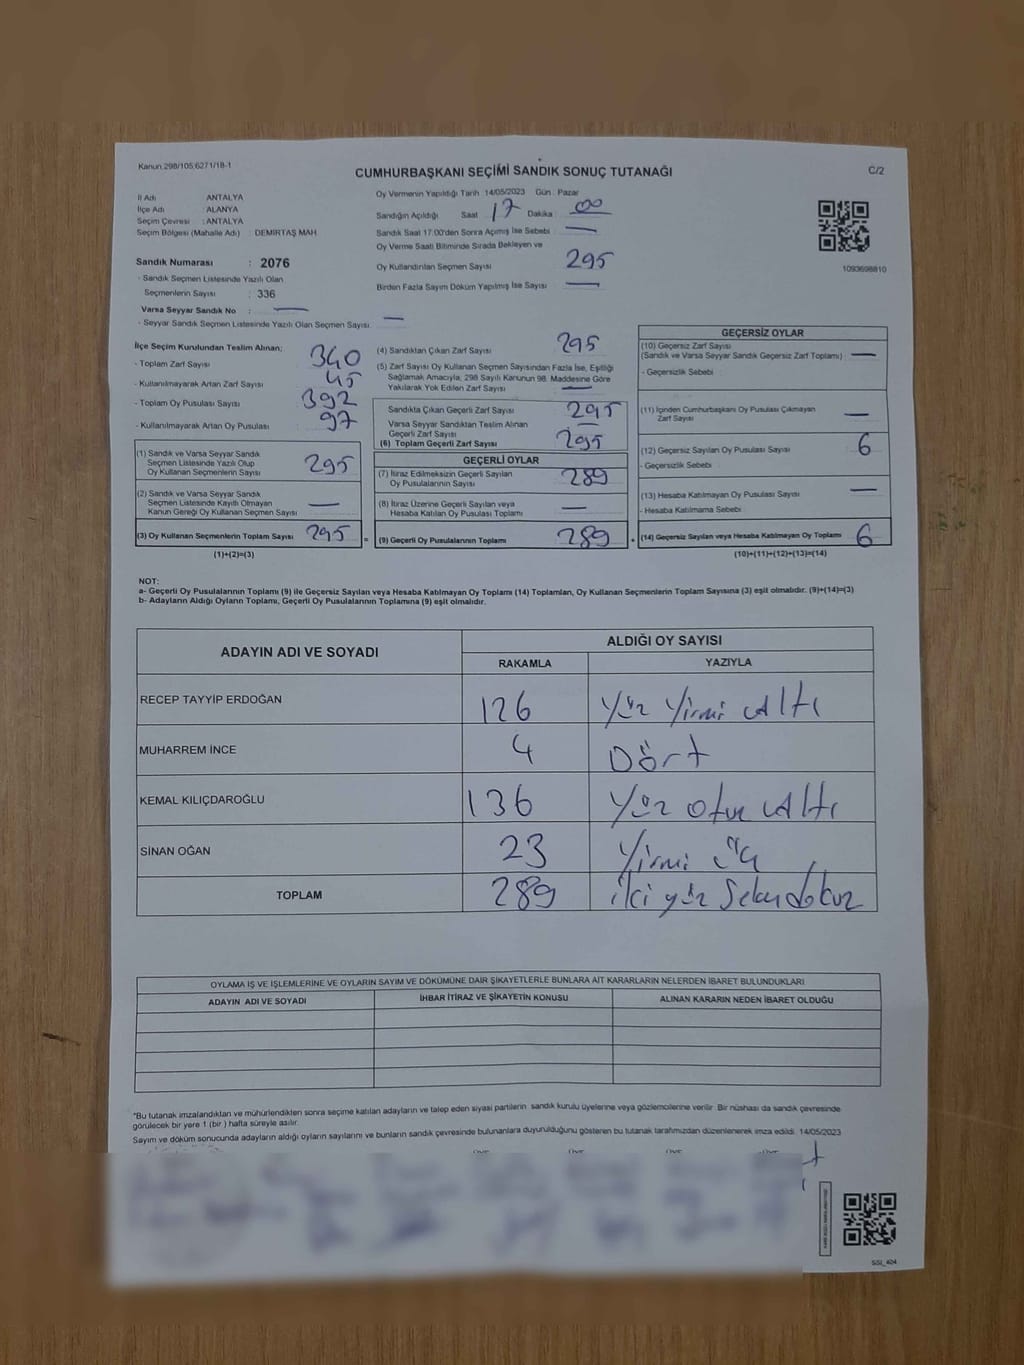 Kanun 298/105:6271/18-1
CUMHURBAŞKANI SEÇİMİ SANDIK SONUÇ TUTANAĞI
C/2
İl Adı : ANTALYA
İlçe Adı : ALANYA
Seçim Çevresi : ANTALYA
Seçim Bölgesi (Mahalle Adı) : DEMİRTAŞ MAH
Sandık Numarası : 2076
- Sandık Seçmen Listesinde Yazılı Olan
Seçmenlerin Sayısı : 336
Varsa Seyyar Sandık No : —
- Seyyar Sandık Seçmen Listesinde Yazılı Olan Seçmen Sayısı: —
Oy Vermenin Yapıldığı Tarih 14/05/2023 Gün : Pazar
Sandığın Açıldığı Saat 17 Dakika : 00
Sandık Saat 17:00'den Sonra Açımış İse Sebebi : —
Oy Verme Saati Bitiminde Sırada Bekleyen ve
Oy Kullandırılan Seçmen Sayısı 295
Birden Fazla Sayım Döküm Yapılmış İse Sayısı —
1093698810
İlçe Seçim Kurulundan Teslim Alınan;
- Toplam Zarf Sayısı 340
- Kullanılmayarak Artan Zarf Sayısı 45
- Toplam Oy Pusulası Sayısı 392
- Kullanılmayarak Artan Oy Pusulası 97
(1) Sandık ve Varsa Seyyar Sandık
Seçmen Listesinde Yazılı Olup
Oy Kullanan Seçmenlerin Sayısı 295
(2) Sandık ve Varsa Seyyar Sandık
Seçmen Listesinde Kayıtlı Olmayan
Kanun Gereği Oy Kullanan Seçmen Sayısı —
(3) Oy Kullanan Seçmenlerin Toplam Sayısı 295 =
(1)+(2)=(3)
(4) Sandıktan Çıkan Zarf Sayısı 295
(5) Zarf Sayısı Oy Kullanan Seçmen Sayısından Fazla İse, Eşitliği
Sağlamak Amacıyla, 298 Sayılı Kanunun 98. Maddesine Göre
Yakılarak Yok Edilen Zarf Sayısı —
Sandıkta Çıkan Geçerli Zarf Sayısı 295
Varsa Seyyar Sandıktan Teslim Alınan
Geçerli Zarf Sayısı —
(6) Toplam Geçerli Zarf Sayısı 295
GEÇERLİ OYLAR
(7) İtiraz Edilmeksizin Geçerli Sayılan
Oy Pusulalarının Sayısı 289
(8) İtiraz Üzerine Geçerli Sayılan veya
Hesaba Katılan Oy Pusulası Toplamı —
(9) Geçerli Oy Pusulalarının Toplamı 289 +
GEÇERSİZ OYLAR
(10) Geçersiz Zarf Sayısı
(Sandık ve Varsa Seyyar Sandık Geçersiz Zarf Toplamı) —
- Geçersizlik Sebebi :
(11) İçinden Cumhurbaşkanı Oy Pusulası Çıkmayan
Zarf Sayısı —
(12) Geçersiz Sayılan Oy Pusulası Sayısı 6
- Geçersizlik Sebebi :
(13) Hesaba Katılmayan Oy Pusulası Sayısı —
- Hesaba Katılmama Sebebi :
(14) Geçersiz Sayılan veya Hesaba Katılmayan Oy Toplamı 6
(10)+(11)+(12)+(13)=(14)
NOT:
a- Geçerli Oy Pusulalarının Toplamı (9) ile Geçersiz Sayılan veya Hesaba Katılmayan Oy Toplamı (14) Toplamları, Oy Kullanan Seçmenlerin Toplam Sayısına (3) eşit olmalıdır. (9)+(14)=(3)
b- Adayların Aldığı Oyların Toplamı, Geçerli Oy Pusulalarının Toplamına (9) eşit olmalıdır.
ADAYIN ADI VE SOYADI
ALDIĞI OY SAYISI
RAKAMLA YAZIYLA
RECEP TAYYİP ERDOĞAN 126 Yüz Yirmi Altı
MUHARREM İNCE 4 Dört
KEMAL KILIÇDAROĞLU 136 Yüz otuz Altı
SİNAN OĞAN 23 Yirmi üç
TOPLAM 289 iki yüz Seksendokuz
OYLAMA İŞ VE İŞLEMLERİNE VE OYLARIN SAYIM VE DÖKÜMÜNE DAİR ŞİKAYETLERLE BUNLARA AİT KARARLARIN NELERDEN İBARET BULUNDUKLARI
ADAYIN ADI VE SOYADI İHBAR İTİRAZ VE ŞİKAYETİN KONUSU ALINAN KARARIN NEDEN İBARET OLDUĞU
*Bu tutanak imzalandıktan ve mühürlendikten sonra seçime katılan adayların ve talep eden siyasi partilerin sandık kurulu üyelerine veya gözlemcilerine verilir. Bir nüshası da sandık çevresinde
görülecek bir yere 1 (bir ) hafta süreyle asılır.
Sayım ve döküm sonucunda adayların aldığı oyların sayılarını ve bunların sandık çevresinde bulunanlara duyurulduğunu gösteren bu tutanak tarafımızdan düzenlenerek imza edildi. 14/05/2023
SSİ_404